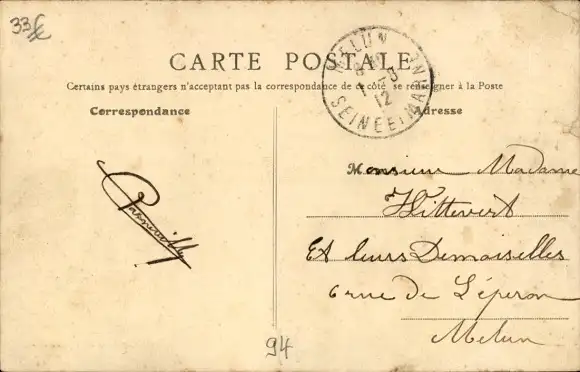 33€
CARTE POSTALE
Certains pays étrangers n'acceptant pas la correspondance de ce côté se renseigner à la Poste
Correspondance
Adresse
MELUN
SEINE ET MARNE
12
Monsieur Madame
Et leurs Demoiselles
6 rue de L'éperon
Melun
94